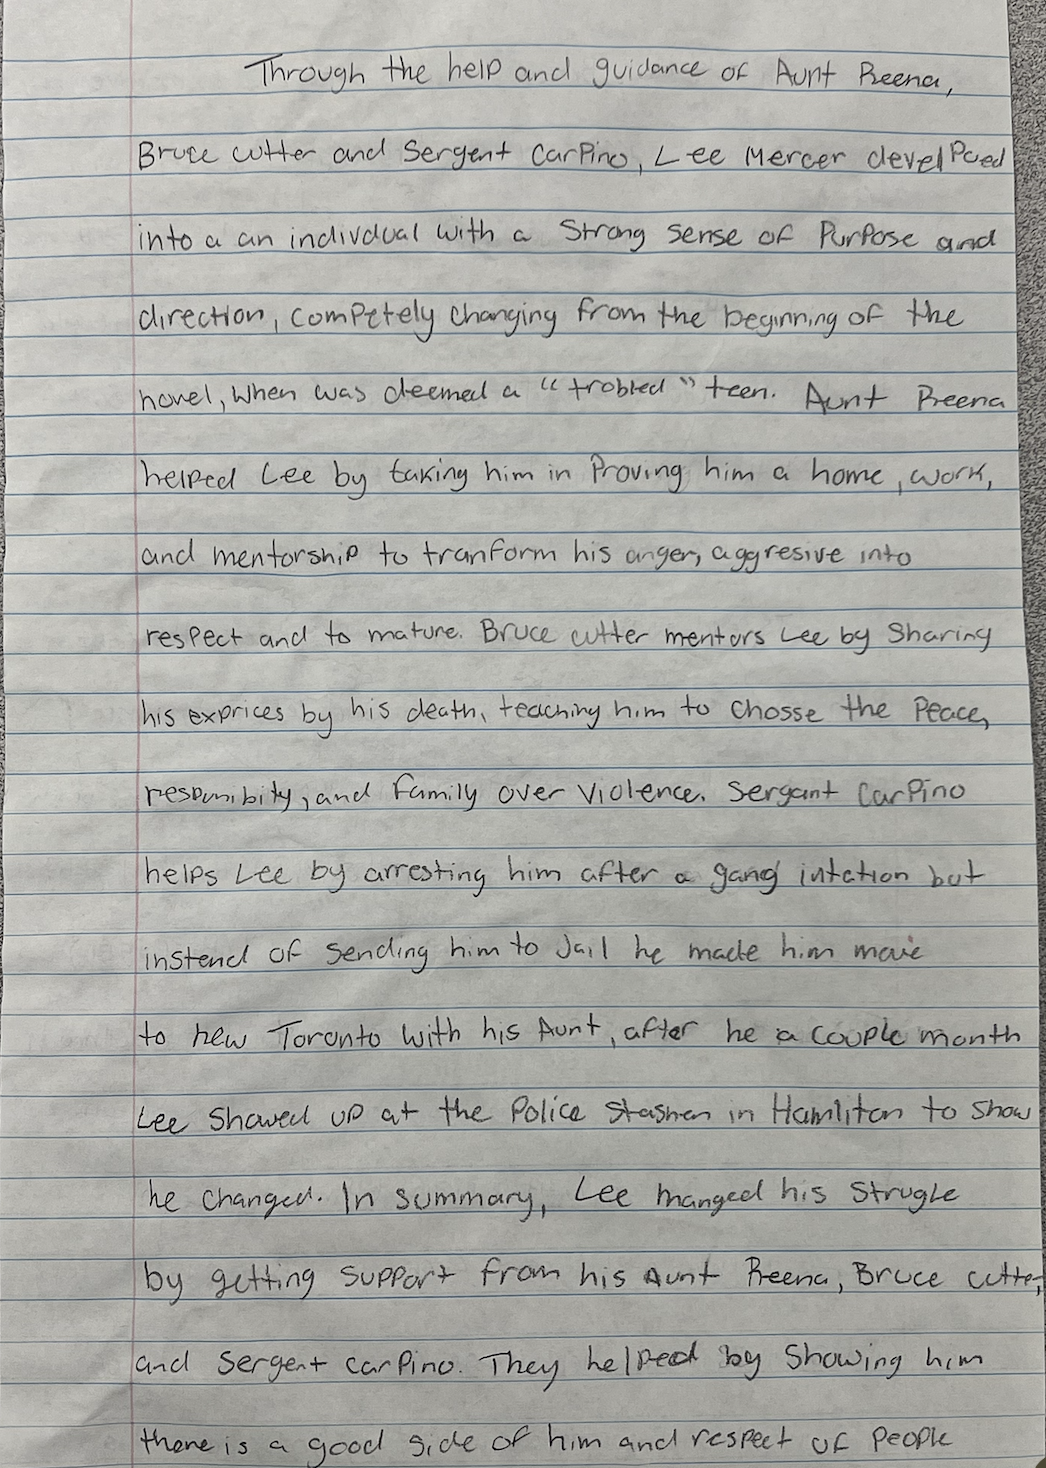 Through the help and guidance of Aunt Reena,
Bruce cutter and Sergent Carpino, Lee Mercer develpoed
into a an indivdual with a strong sense of purpose and
direction, competely changing from the beginning of the
novel, when was deemed a "trobled" teen. Aunt Reena
helped Lee by taking him in Proving him a home, work,
and mentorship to tranform his anger, aggresive into
respect and to mature. Bruce cutter mentors Lee by sharing
his exprices by his death, teaching him to chosse the peace,
responibity, and family over violence. Sergant Carpino
helps Lee by arresting him after a gang intation but
instend of sending him to Jail he made him move
to new Toronto with his Aunt, after he a couple month
Lee showed up at the police stashen in Hamliton to show
he changed. In summary, Lee manged his strugle
by getting support from his Aunt Reena, Bruce cutter,
and Sergent carpino. They helped by showing him
there is a good side of him and respect of people